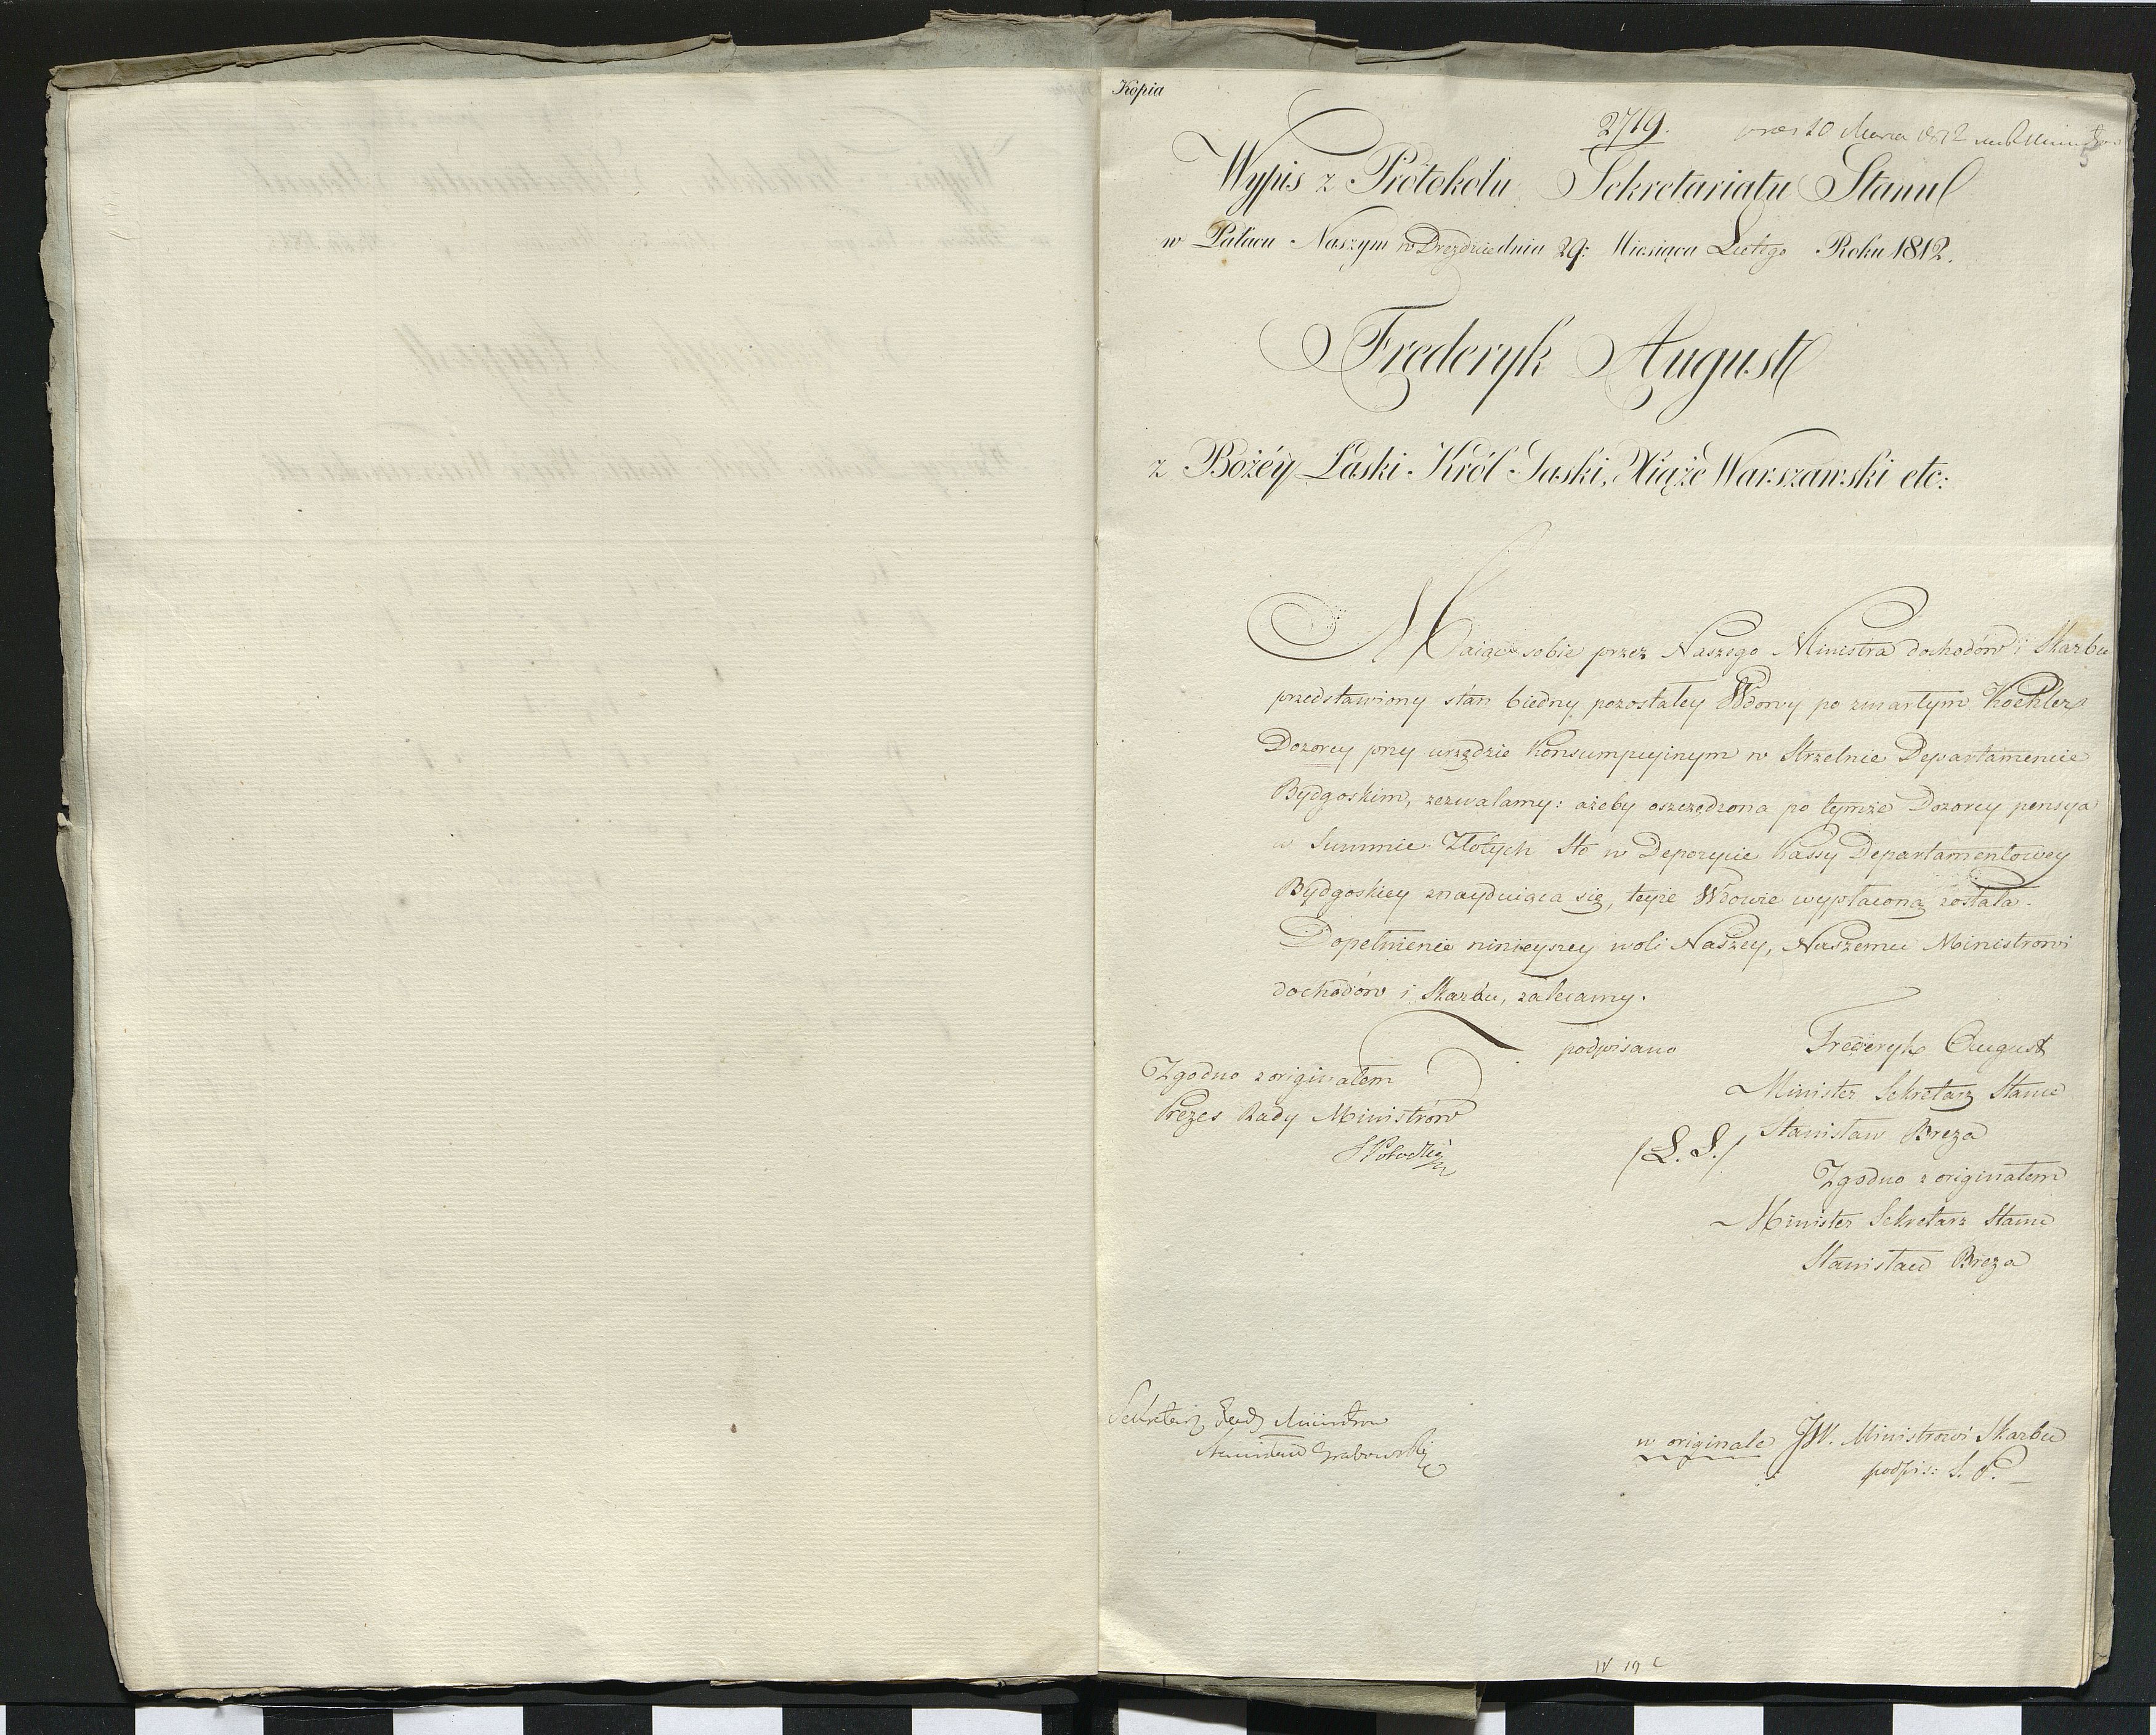 Kopia
2719.
10 Marca 1812
5
Wypis z Protokołu Sekretariatu Stanu
w Pałacu Naszym w Dreźdnie dnia 29: Miesiąca Lutego Roku 1812.
Frederyk August
z Bożéy Łaski Król Saski, Xiąże Warszawski etc:
Maiąc sobie przez Naszego Ministra dochodów i Skarbu
przedstawiony stan biedny pozostałey Wdowy po zmarłym Koehler
Dozorcy przy urzędzie Konsumpcyinym w Strzelnie Departamencie
Bydgoskim, zezwalamy: ażeby oszczędzona po tymże Dozorcy pensya
w Summie Złotych Sto w Depozycie Kassy Departamentowey
Bydgoskiey znayduiąca się, teyże Wdowie wypłaconą została.
Dopełnienie ninieyszey woli Naszey, Naszemu Ministrowi
dochodów i Skarbu, zalecamy.
podpisano Frederyk August
Minister Sekretarz Stanu
/L. S./ Stanisław Breza
Zgodno z originałem
Minister Sekretarz Stanu
Stanisław Breza
Zgodno z originałem
Prezes Rady Ministrów
S Potocki
Sekretarz Rady Ministrow
Stanisław Grabowski
w originale JW. Ministrowi Skarbu
podpis: S. P.